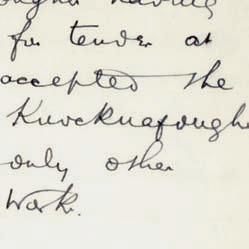 having
for tender at
accepted the
Knocknafoughe
only other
work.